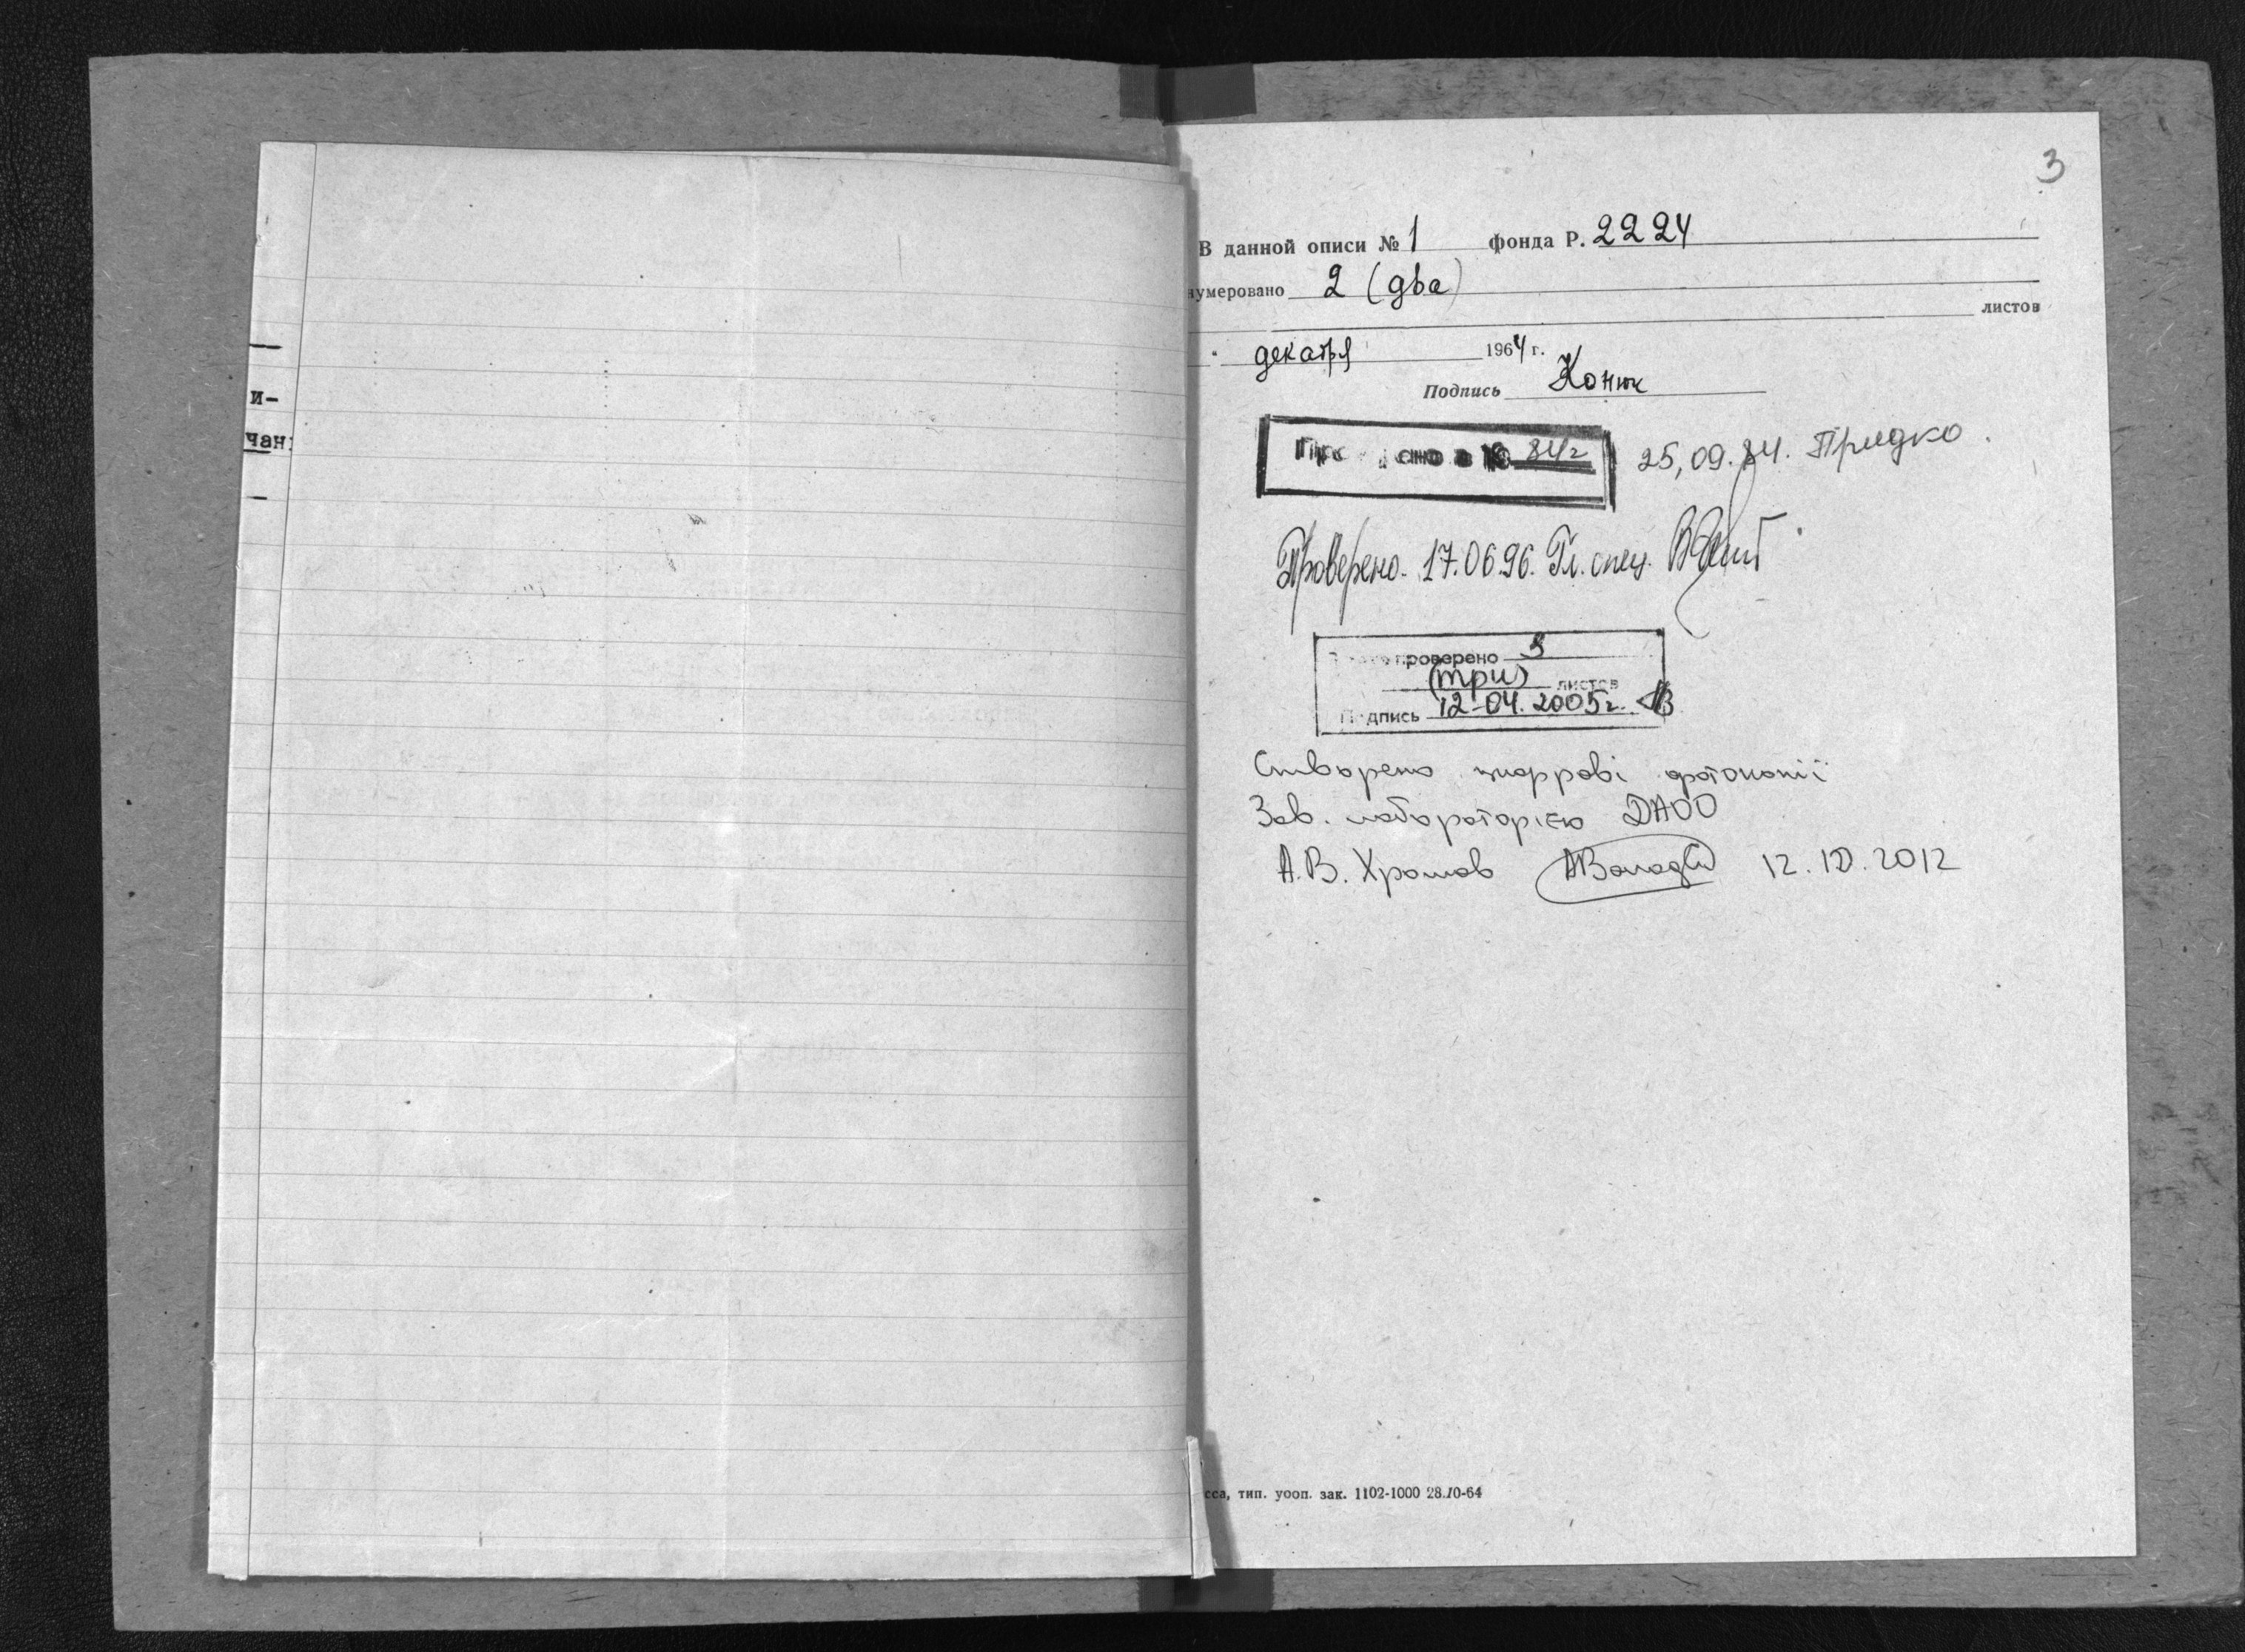 и-
чан
3
В данной описи № 1 фонда Р. 2224
нумеровано 2 (два)
листов
декабря 1964 г.
Подпись
84г
25,09.84. Придко.
Проверено. 17.06.96. Гл. спец.
проверено 3
(три) листов
Подпись 12-04.2005г.
Створено цифрові фотокопії
Зав. лабораторією ДАОО
А.В. Хромов 12.10.2012
сса, тип. уооп. зак. 1102-1000 28.10-64